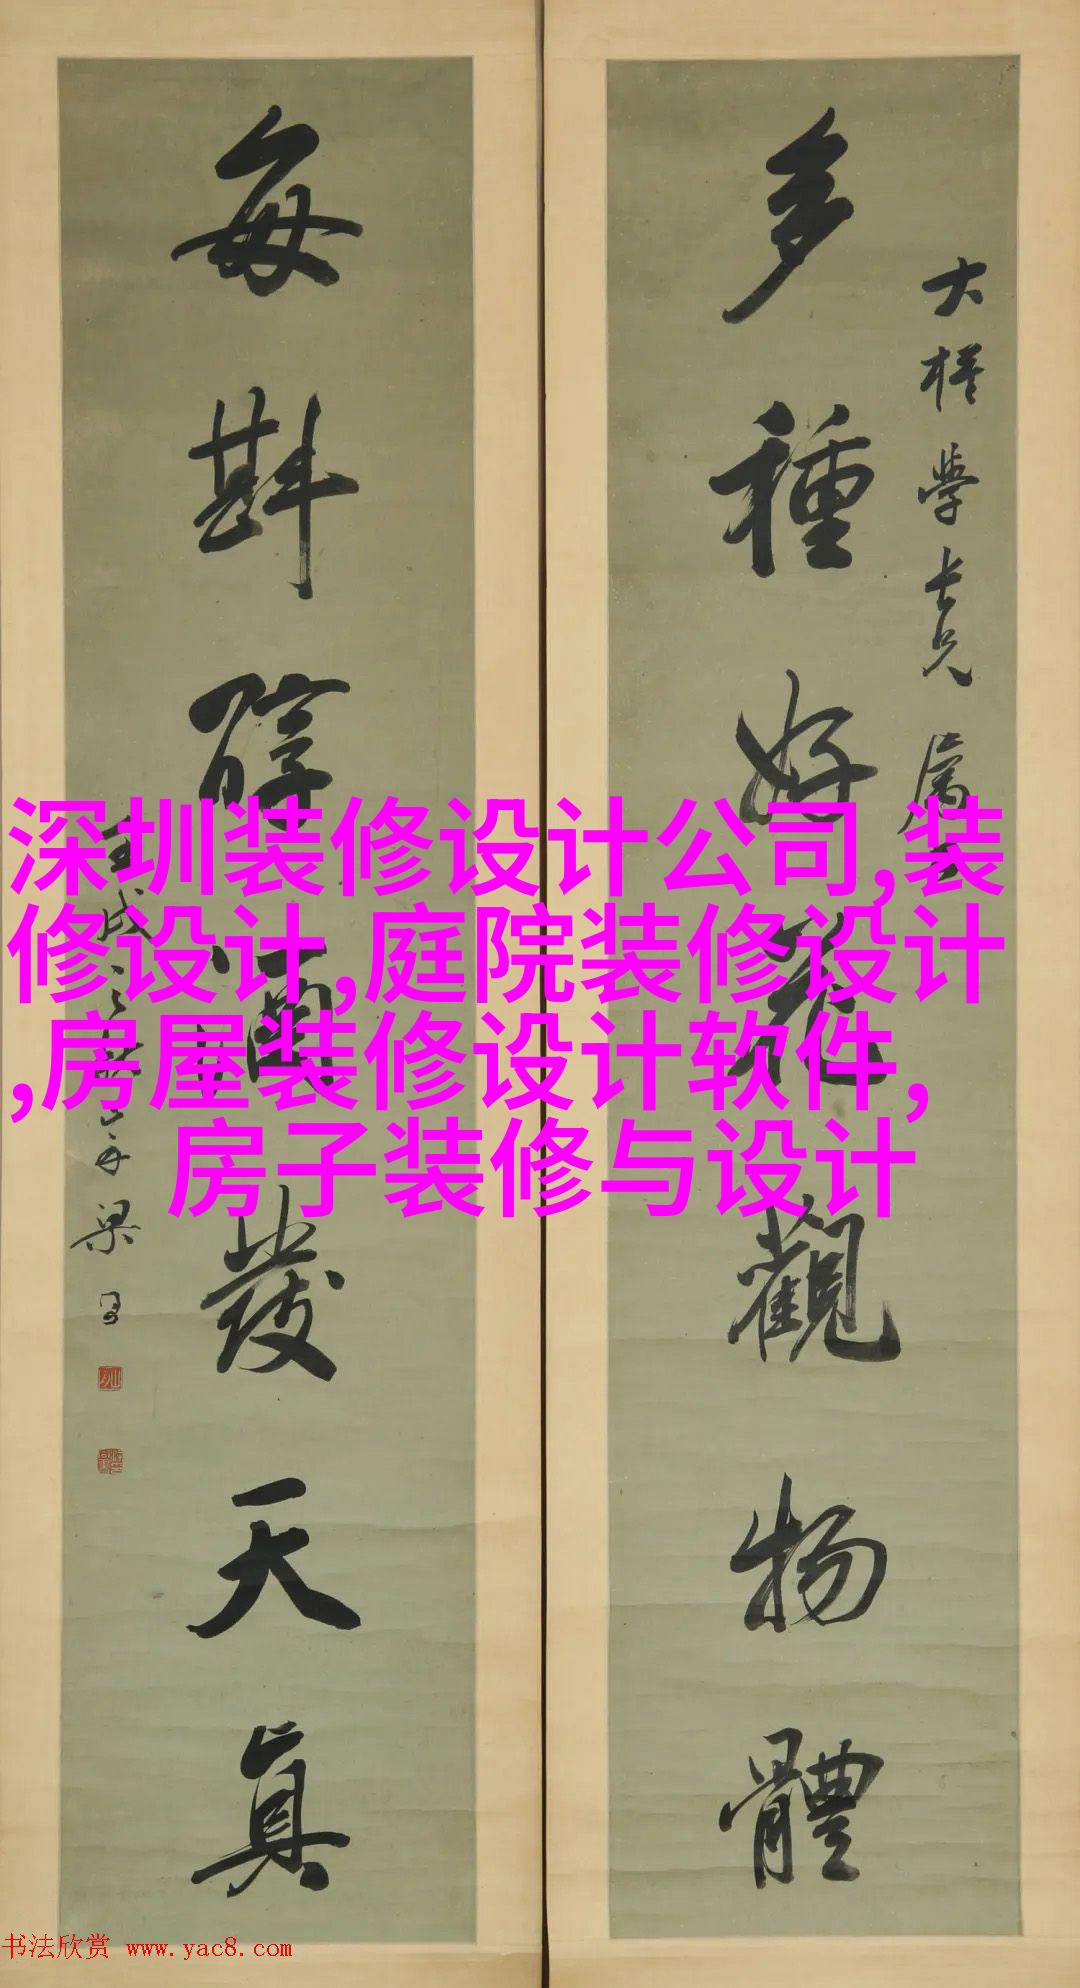 多種好花觀物體
大樁學長兄屬
每斟醇酒發天真
梁
深圳装修设计公司,装
修设计,庭院装修设计
,房屋装修设计软件,
房子装修与设计
书法欣赏 www.yac8.com